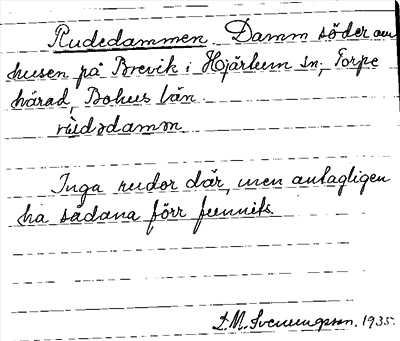 Rudedammen. Damm söder om
husen på Brevik i Hjärtum sn, Torpe
härad, Bohus län.
rùdədamən
Inga rudor där, men antagligen
ha sådana förr funnits.
S.M. Svenungsson. 1935.